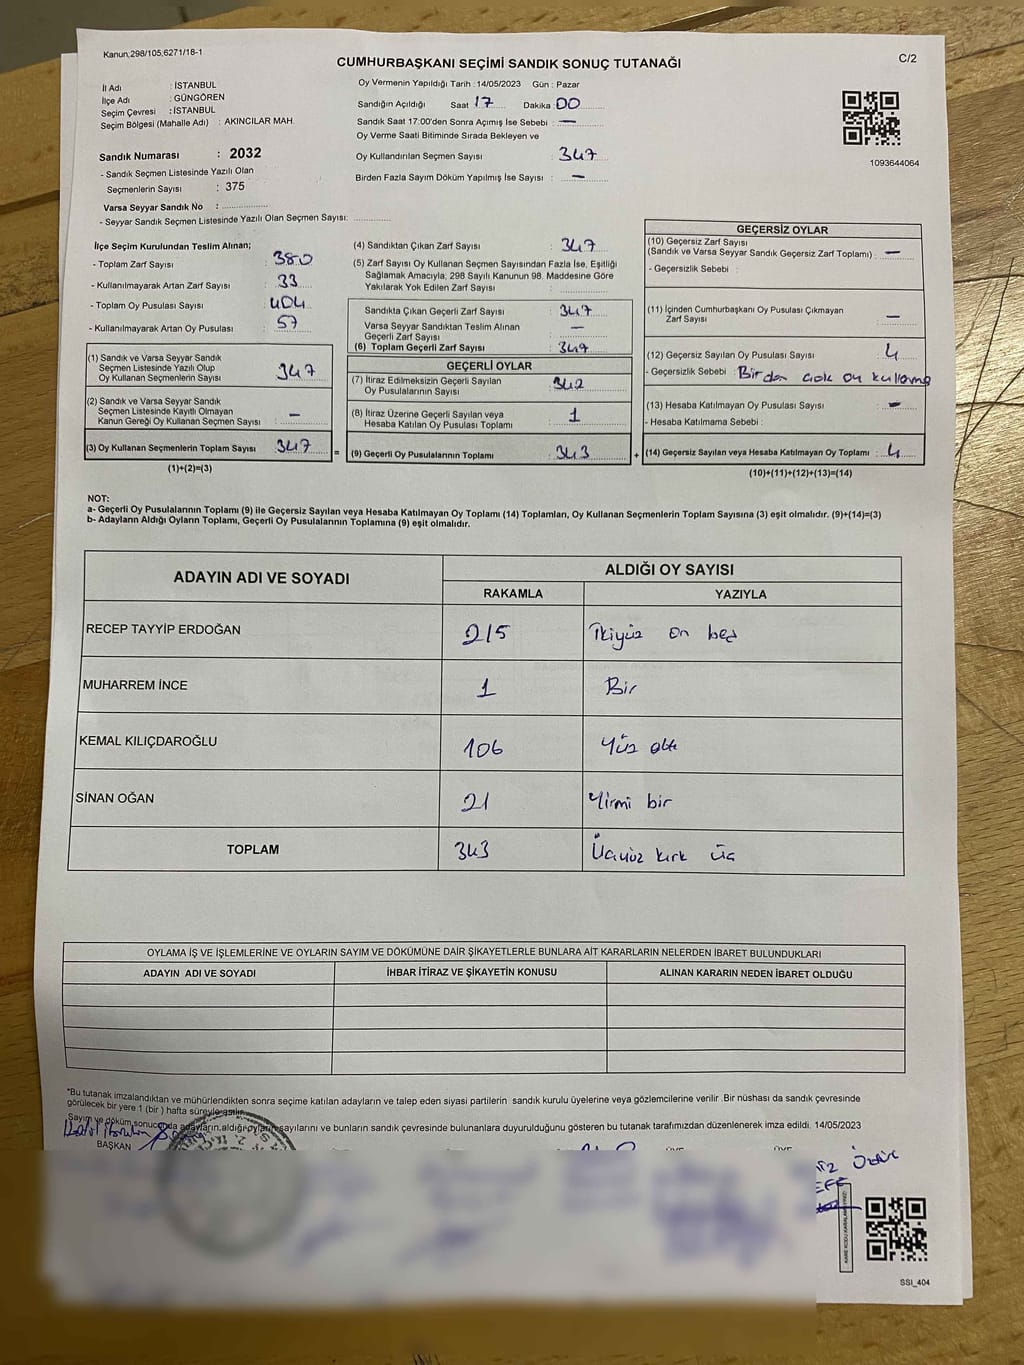 Kanun;298/105,6271/18-1
C/2
CUMHURBAŞKANI SEÇİMİ SANDIK SONUÇ TUTANAĞI
İl Adı : İSTANBUL
İlçe Adı : GÜNGÖREN
Seçim Çevresi : İSTANBUL
Seçim Bölgesi (Mahalle Adı) : AKINCILAR MAH.
Sandık Numarası : 2032
- Sandık Seçmen Listesinde Yazılı Olan
Seçmenlerin Sayısı : 375
Varsa Seyyar Sandık No :
- Seyyar Sandık Seçmen Listesinde Yazılı Olan Seçmen Sayısı:
Oy Vermenin Yapıldığı Tarih : 14/05/2023 Gün : Pazar
Sandığın Açıldığı Saat 17 Dakika : 00
Sandık Saat 17:00'den Sonra Açımış İse Sebebi : —
Oy Verme Saati Bitiminde Sırada Bekleyen ve
Oy Kullandırılan Seçmen Sayısı : 347
Birden Fazla Sayım Döküm Yapılmış İse Sayısı : —
1093644064
İlçe Seçim Kurulundan Teslim Alınan;
- Toplam Zarf Sayısı : 380
- Kullanılmayarak Artan Zarf Sayısı : 33
- Toplam Oy Pusulası Sayısı : 404
- Kullanılmayarak Artan Oy Pusulası : 57
(1) Sandık ve Varsa Seyyar Sandık
Seçmen Listesinde Yazılı Olup
Oy Kullanan Seçmenlerin Sayısı : 347
(2) Sandık ve Varsa Seyyar Sandık
Seçmen Listesinde Kayıtlı Olmayan
Kanun Gereği Oy Kullanan Seçmen Sayısı : —
(3) Oy Kullanan Seçmenlerin Toplam Sayısı : 347
(1)+(2)=(3)
(4) Sandıktan Çıkan Zarf Sayısı : 347
(5) Zarf Sayısı Oy Kullanan Seçmen Sayısından Fazla İse, Eşitliği
Sağlamak Amacıyla; 298 Sayılı Kanunun 98. Maddesine Göre
Yakılarak Yok Edilen Zarf Sayısı :
Sandıkta Çıkan Geçerli Zarf Sayısı : 347
Varsa Seyyar Sandıktan Teslim Alınan
Geçerli Zarf Sayısı : —
(6) Toplam Geçerli Zarf Sayısı : 347
GEÇERLİ OYLAR
(7) İtiraz Edilmeksizin Geçerli Sayılan
Oy Pusulalarının Sayısı : 342
(8) İtiraz Üzerine Geçerli Sayılan veya
Hesaba Katılan Oy Pusulası Toplamı : 1
= (9) Geçerli Oy Pusulalarının Toplamı : 343
GEÇERSİZ OYLAR
(10) Geçersiz Zarf Sayısı
(Sandık ve Varsa Seyyar Sandık Geçersiz Zarf Toplamı) : —
- Geçersizlik Sebebi :
(11) İçinden Cumhurbaşkanı Oy Pusulası Çıkmayan
Zarf Sayısı : —
(12) Geçersiz Sayılan Oy Pusulası Sayısı : 4
- Geçersizlik Sebebi : Birden çok oy kullanma
(13) Hesaba Katılmayan Oy Pusulası Sayısı : —
- Hesaba Katılmama Sebebi :
+ (14) Geçersiz Sayılan veya Hesaba Katılmayan Oy Toplamı : 4
(10)+(11)+(12)+(13)=(14)
NOT:
a- Geçerli Oy Pusulalarının Toplamı (9) ile Geçersiz Sayılan veya Hesaba Katılmayan Oy Toplamı (14) Toplamları, Oy Kullanan Seçmenlerin Toplam Sayısına (3) eşit olmalıdır. (9)+(14)=(3)
b- Adayların Aldığı Oyların Toplamı, Geçerli Oy Pusulalarının Toplamına (9) eşit olmalıdır.
ADAYIN ADI VE SOYADI ALDIĞI OY SAYISI
RAKAMLA YAZIYLA
RECEP TAYYİP ERDOĞAN 215 İkiyüz on beş
MUHARREM İNCE 1 Bir
KEMAL KILIÇDAROĞLU 106 Yüz altı
SİNAN OĞAN 21 Yirmi bir
TOPLAM 343 Üçyüz kırk üç
OYLAMA İŞ VE İŞLEMLERİNE VE OYLARIN SAYIM VE DÖKÜMÜNE DAİR ŞİKAYETLERLE BUNLARA AİT KARARLARIN NELERDEN İBARET BULUNDUKLARI
ADAYIN ADI VE SOYADI İHBAR İTİRAZ VE ŞİKAYETİN KONUSU ALINAN KARARIN NEDEN İBARET OLDUĞU
"Bu tutanak imzalandıktan ve mühürlendikten sonra seçime katılan adayların ve talep eden siyasi partilerin sandık kurulu üyelerine veya gözlemcilerine verilir .Bir nüshası da sandık çevresinde
görülecek bir yere 1 (bir ) hafta süreyle asılır.
Sayım ve döküm sonucunda adayların,aldığı oyların sayılarını ve bunların sandık çevresinde bulunanlara duyurulduğunu gösteren bu tutanak tarafımızdan düzenlenerek imza edildi. 14/05/2023
BAŞKAN
SSI_404